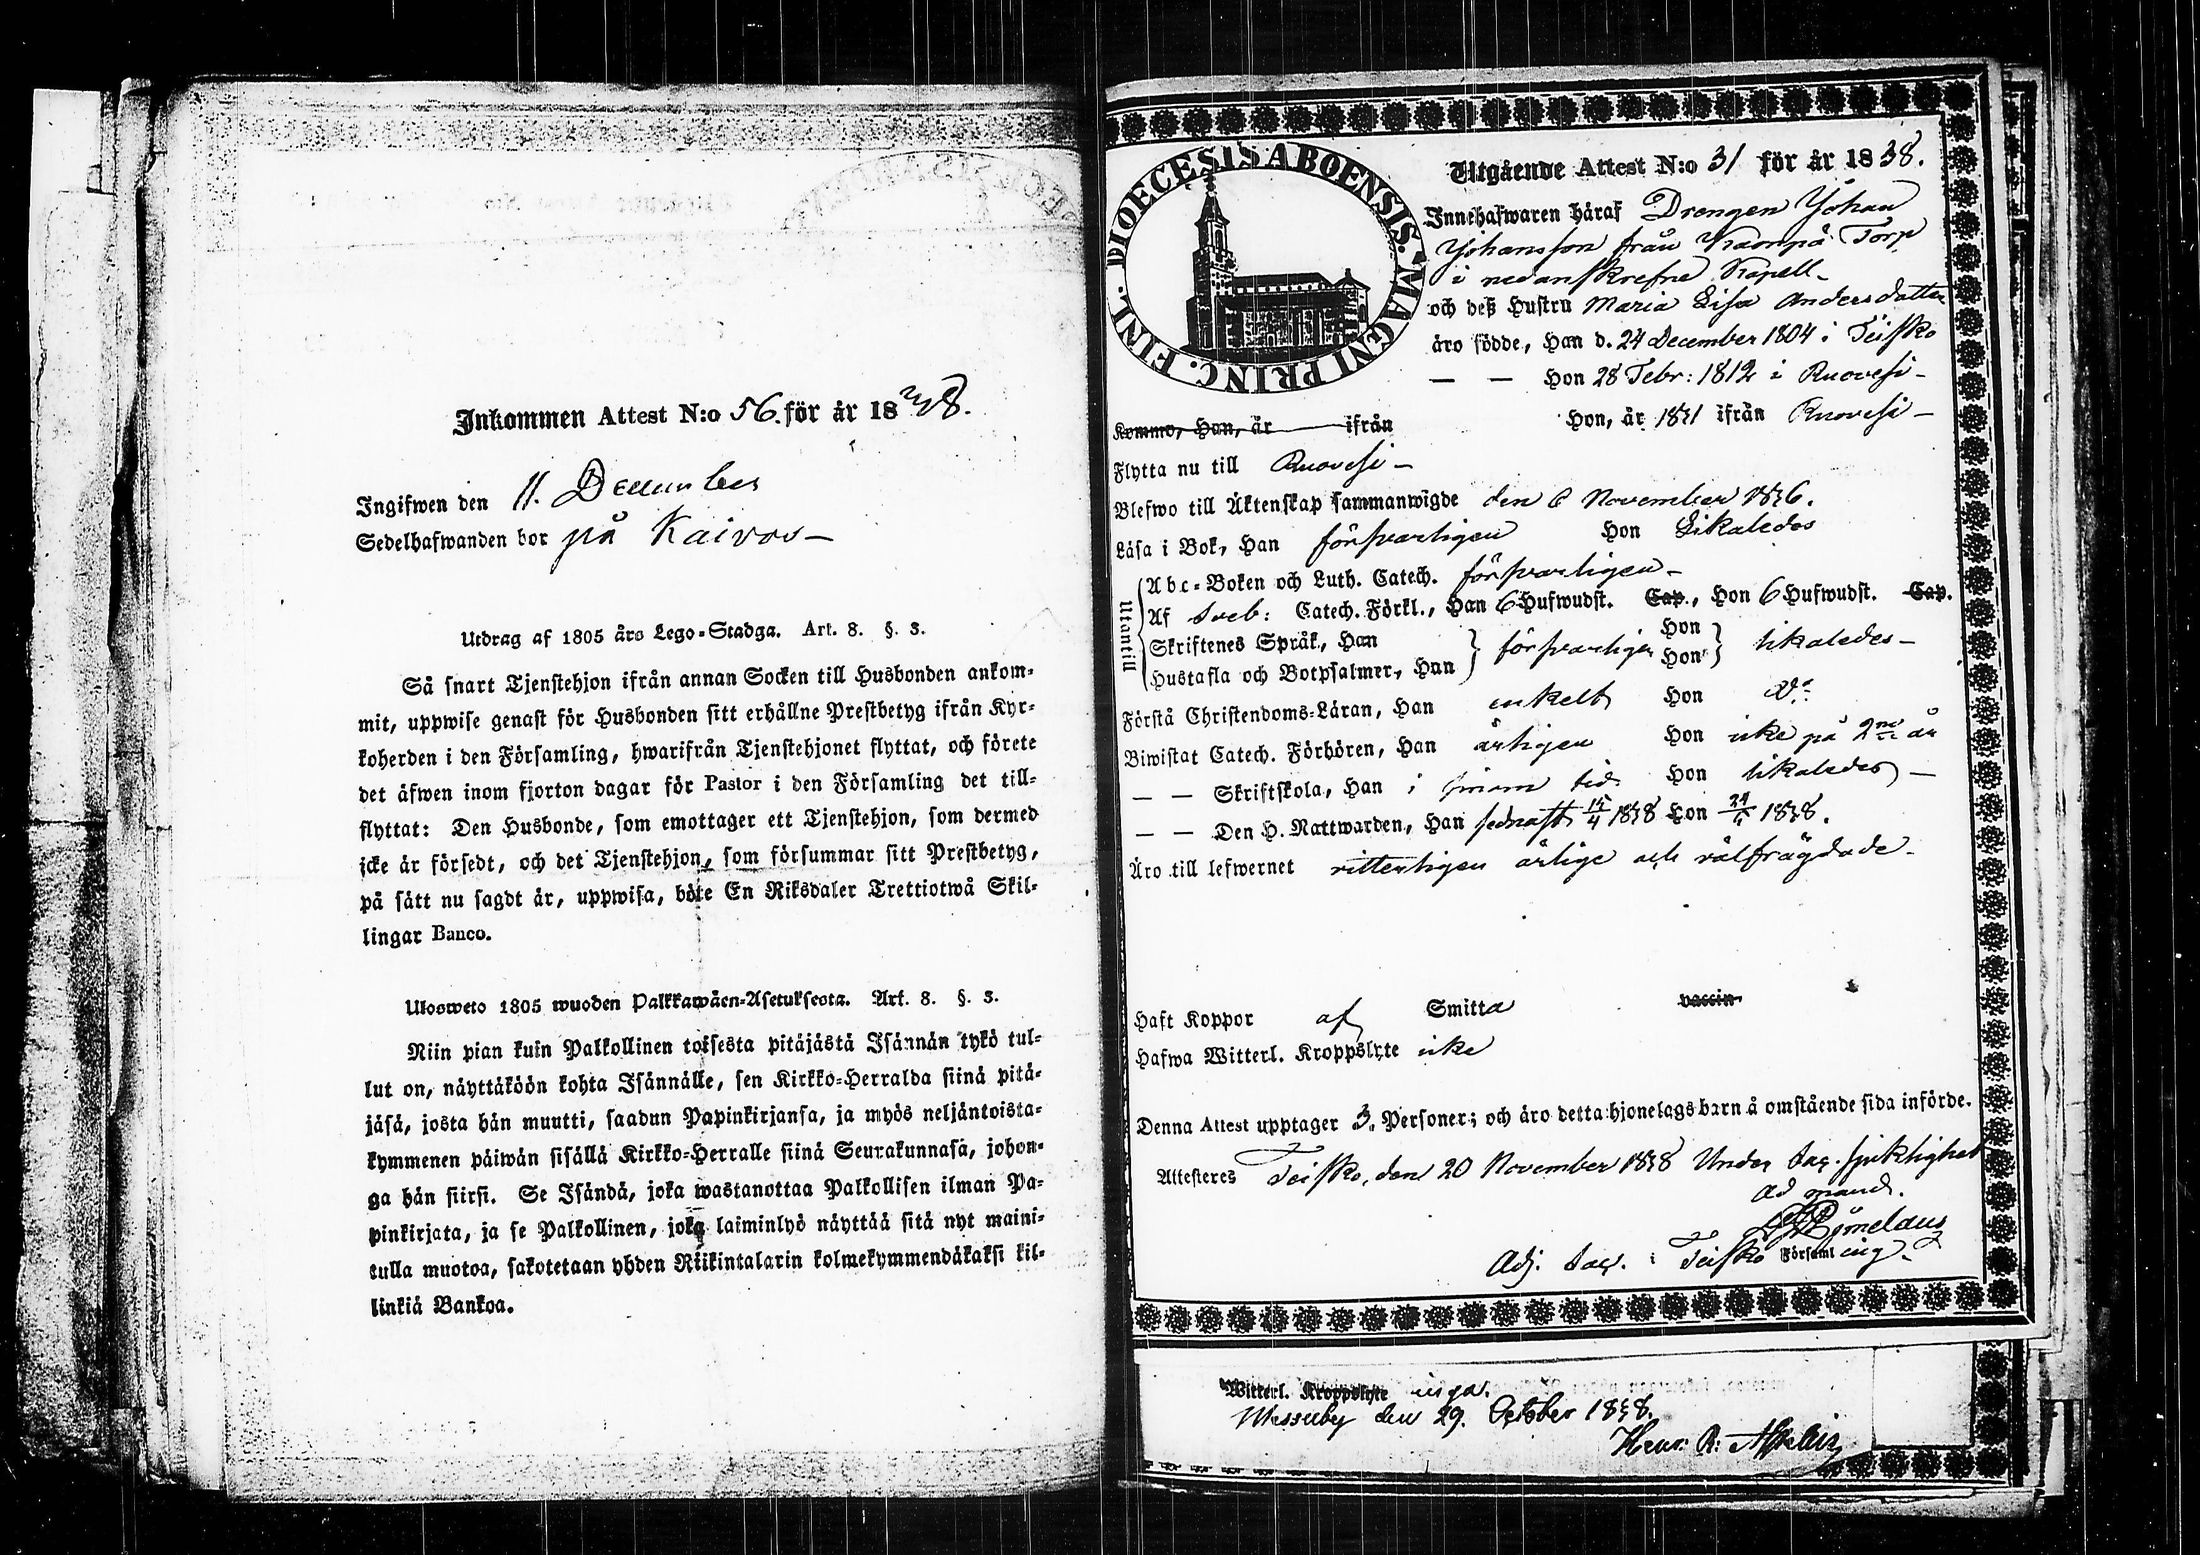 Inkommen Attest N:o 56. för år 1838.
Ingifwen den 11. December
Sedelhafwanden bor på Kaivos —
Utdrag af 1805 års Lego-Stadga. Art. 8. §. 3.
Så snart Tjenstehjon ifrån annan Socken till Husbonden ankom-
mit, uppwise genast för Husbonden sitt erhållne Prestbetyg ifrån Kyr-
koherden i den Församling, hwarifrån Tjenstehjonet flyttat, och förete
det äfwen inom fjorton dagar för Pastor i den Församling det till-
flyttat: Den Husbonde, som emottager ett Tjenstehjon, som dermed
icke är försedt, och det Tjenstehjon, som försummar sitt Prestbetyg,
på sätt nu sagdt är, uppwisa, böte En Riksdaler Trettiotwå Skil-
lingar Banco.
Ulosweto 1805 wuoden Palkkawäen-Asetuksesta. Art. 8. §. 3.
Niin pian kuin Palkollinen toisesta pitäjästä Isännän tykö tul-
lut on, näyttäköön kohta Isännälle, sen Kirkko-Herralda siinä pitä-
jäsä, josta hän muutti, saadun Papinkirjansa, ja myös neljäntoista-
kymmenen päiwän sisällä Kirkko-Herralle siinä Seurakunnasa, johon-
ga hän siirsi. Se Isändä, joka wastanottaa Palkollisen ilman Pa-
pinkirjata, ja se Palkollinen, joka laiminlyö näyttää sitä nyt maini-
tulla muotoa, sakotetaan yhden Riikintalarin kolmekymmendäkaksi kil-
linkiä Bankoa.
DIOECESIS ABOENSIS. MAGNI PRINC. FINL.
Utgående Attest N:o 31 för år 1838.
Innehafwaren häraf Drengen Johan
Johansson från Kaonpä Torp
i nedanskrefne Kapell —
och deß Hustru Maria Lisa Andersdotter
äro födde, Han d. 24 December 1804 i Teisko
— — Hon 28 Febr: 1812 i Ruovesi —
Kommo, Han, år ifrån Hon, år 1831 ifrån Ruovesi —
Flytta nu till Ruovesi —
Blefwo till Äktenskap sammanwigde den 6 November 1836.
Läsa i Bok, Han försvarligen Hon Likaledes
Utantill
Abc-Boken och Luth. Catech. försvarligen —
Af Sveb: Catech. Förkl., Han 6 Hufwudst. Cap., Hon 6 Hufwudst. Cap.
Skriftenes Språk, Han försvarligen Hon likaledes —
Hustafla och Botpsalmer, Han Hon
Förstå Christendoms-Läran, Han enkelt Hon Do
Biwistat Catech. Förhören, Han årligen Hon icke på 2ne år
— — Skriftskola, Han i sinom tid Hon likaledes —
— — Den H. Nattwarden, Han sednast 15/4 1838 Hon 24/6 1838.
Äro till lefwernet vitterligen ärlige och välfrägdade —
Haft Koppor af Smitta vaccin
Hafwa Witterl. Kroppslyte icke
Denna Attest upptager 3. Personer; och äro detta hjonelags barn å omstående sida införde.
Attesteres Teisko, den 20 November 1838 Under Sac. sjuklighet
ad mand.
Adj. Sac. i Teisko Församling —
Witterl. Kroppslyte inga.
Messuby den 29. October 1838.
Henr. R: Asplin